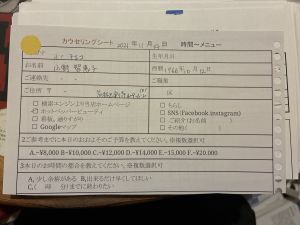 カウセリングシート 2021年11月 時間〜メニュー
お名前 生年月日
西暦 1966年 月12日
ご連絡先
ご住所 〒 区
□検索エンジンより当店ホームページ □ちらし
ホットペッパービューティ □SNS(Facebook.instagram)
□看板、通りすがり □ご紹介(お名前 )
□Googleマップ □その他(
2ご参考までに本日のおおよそのご予算を教えてください。※複数選択可
A.~¥8,000 B~¥10,000 C.~¥12,000 D.~¥14,000 E.~15,000 F.~¥20,000
3本日のお時間の都合を教えてください。※複数選択可
A, 少し余裕がある B,出来るだけ早くしてほしい
C,( 時 分)までに終わりたい